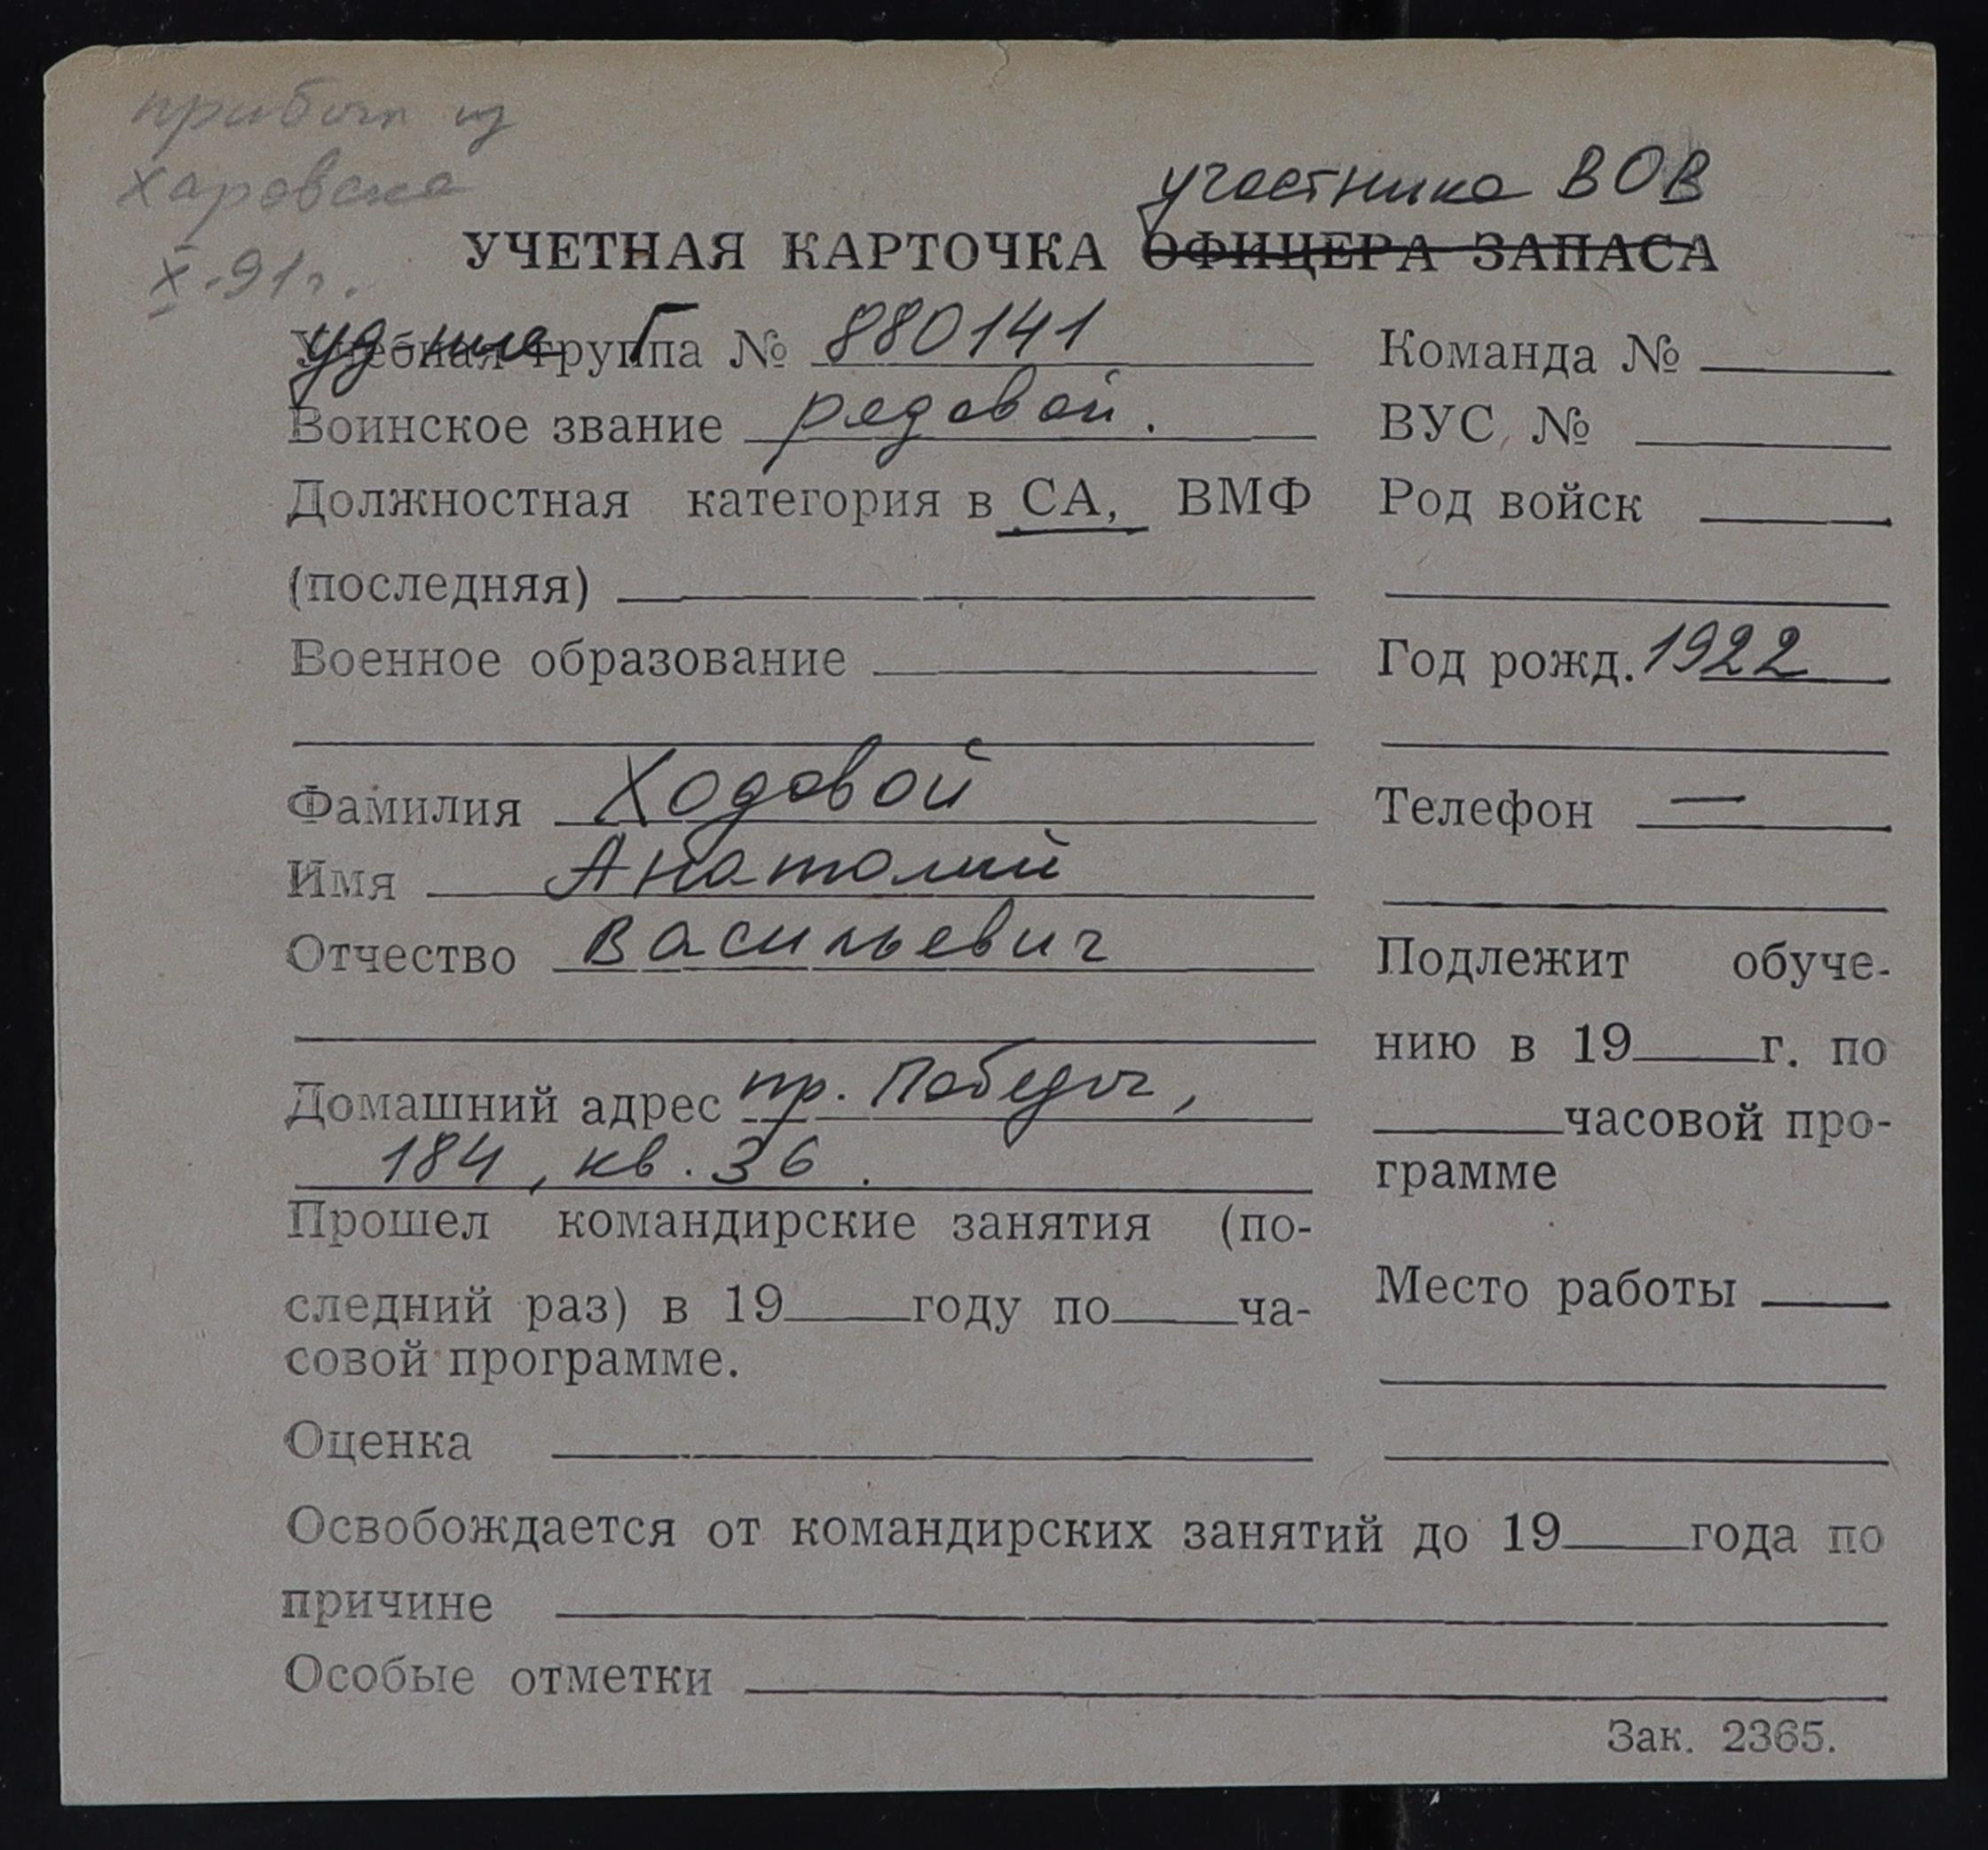 прибыл из
Харовска
X-91г.
участника ВОВ
УЧЕТНАЯ КАРТОЧКА ОФИЦЕРА ЗАПАСА
уд-ние Г
Учебная группа № 880141
Воинское звание рядовой.
Должностная категория в СА, ВМФ
(последняя)
Военное образование
Фамилия Ходовой
Имя Анатолий
Отчество Васильевич
Домашний адрес пр. Победы,
184, кв. 36.
Прошел командирские занятия (по-
следний раз) в 19 году по ча-
совой программе.
Оценка
Команда №
ВУС, №
Род войск
Год рожд. 1922
Телефон —
Подлежит обуче-
нию в 19 г. по
часовой про-
грамме
Место работы
Освобождается от командирских занятий до 19 года по
причине
Особые отметки
Зак. 2365.